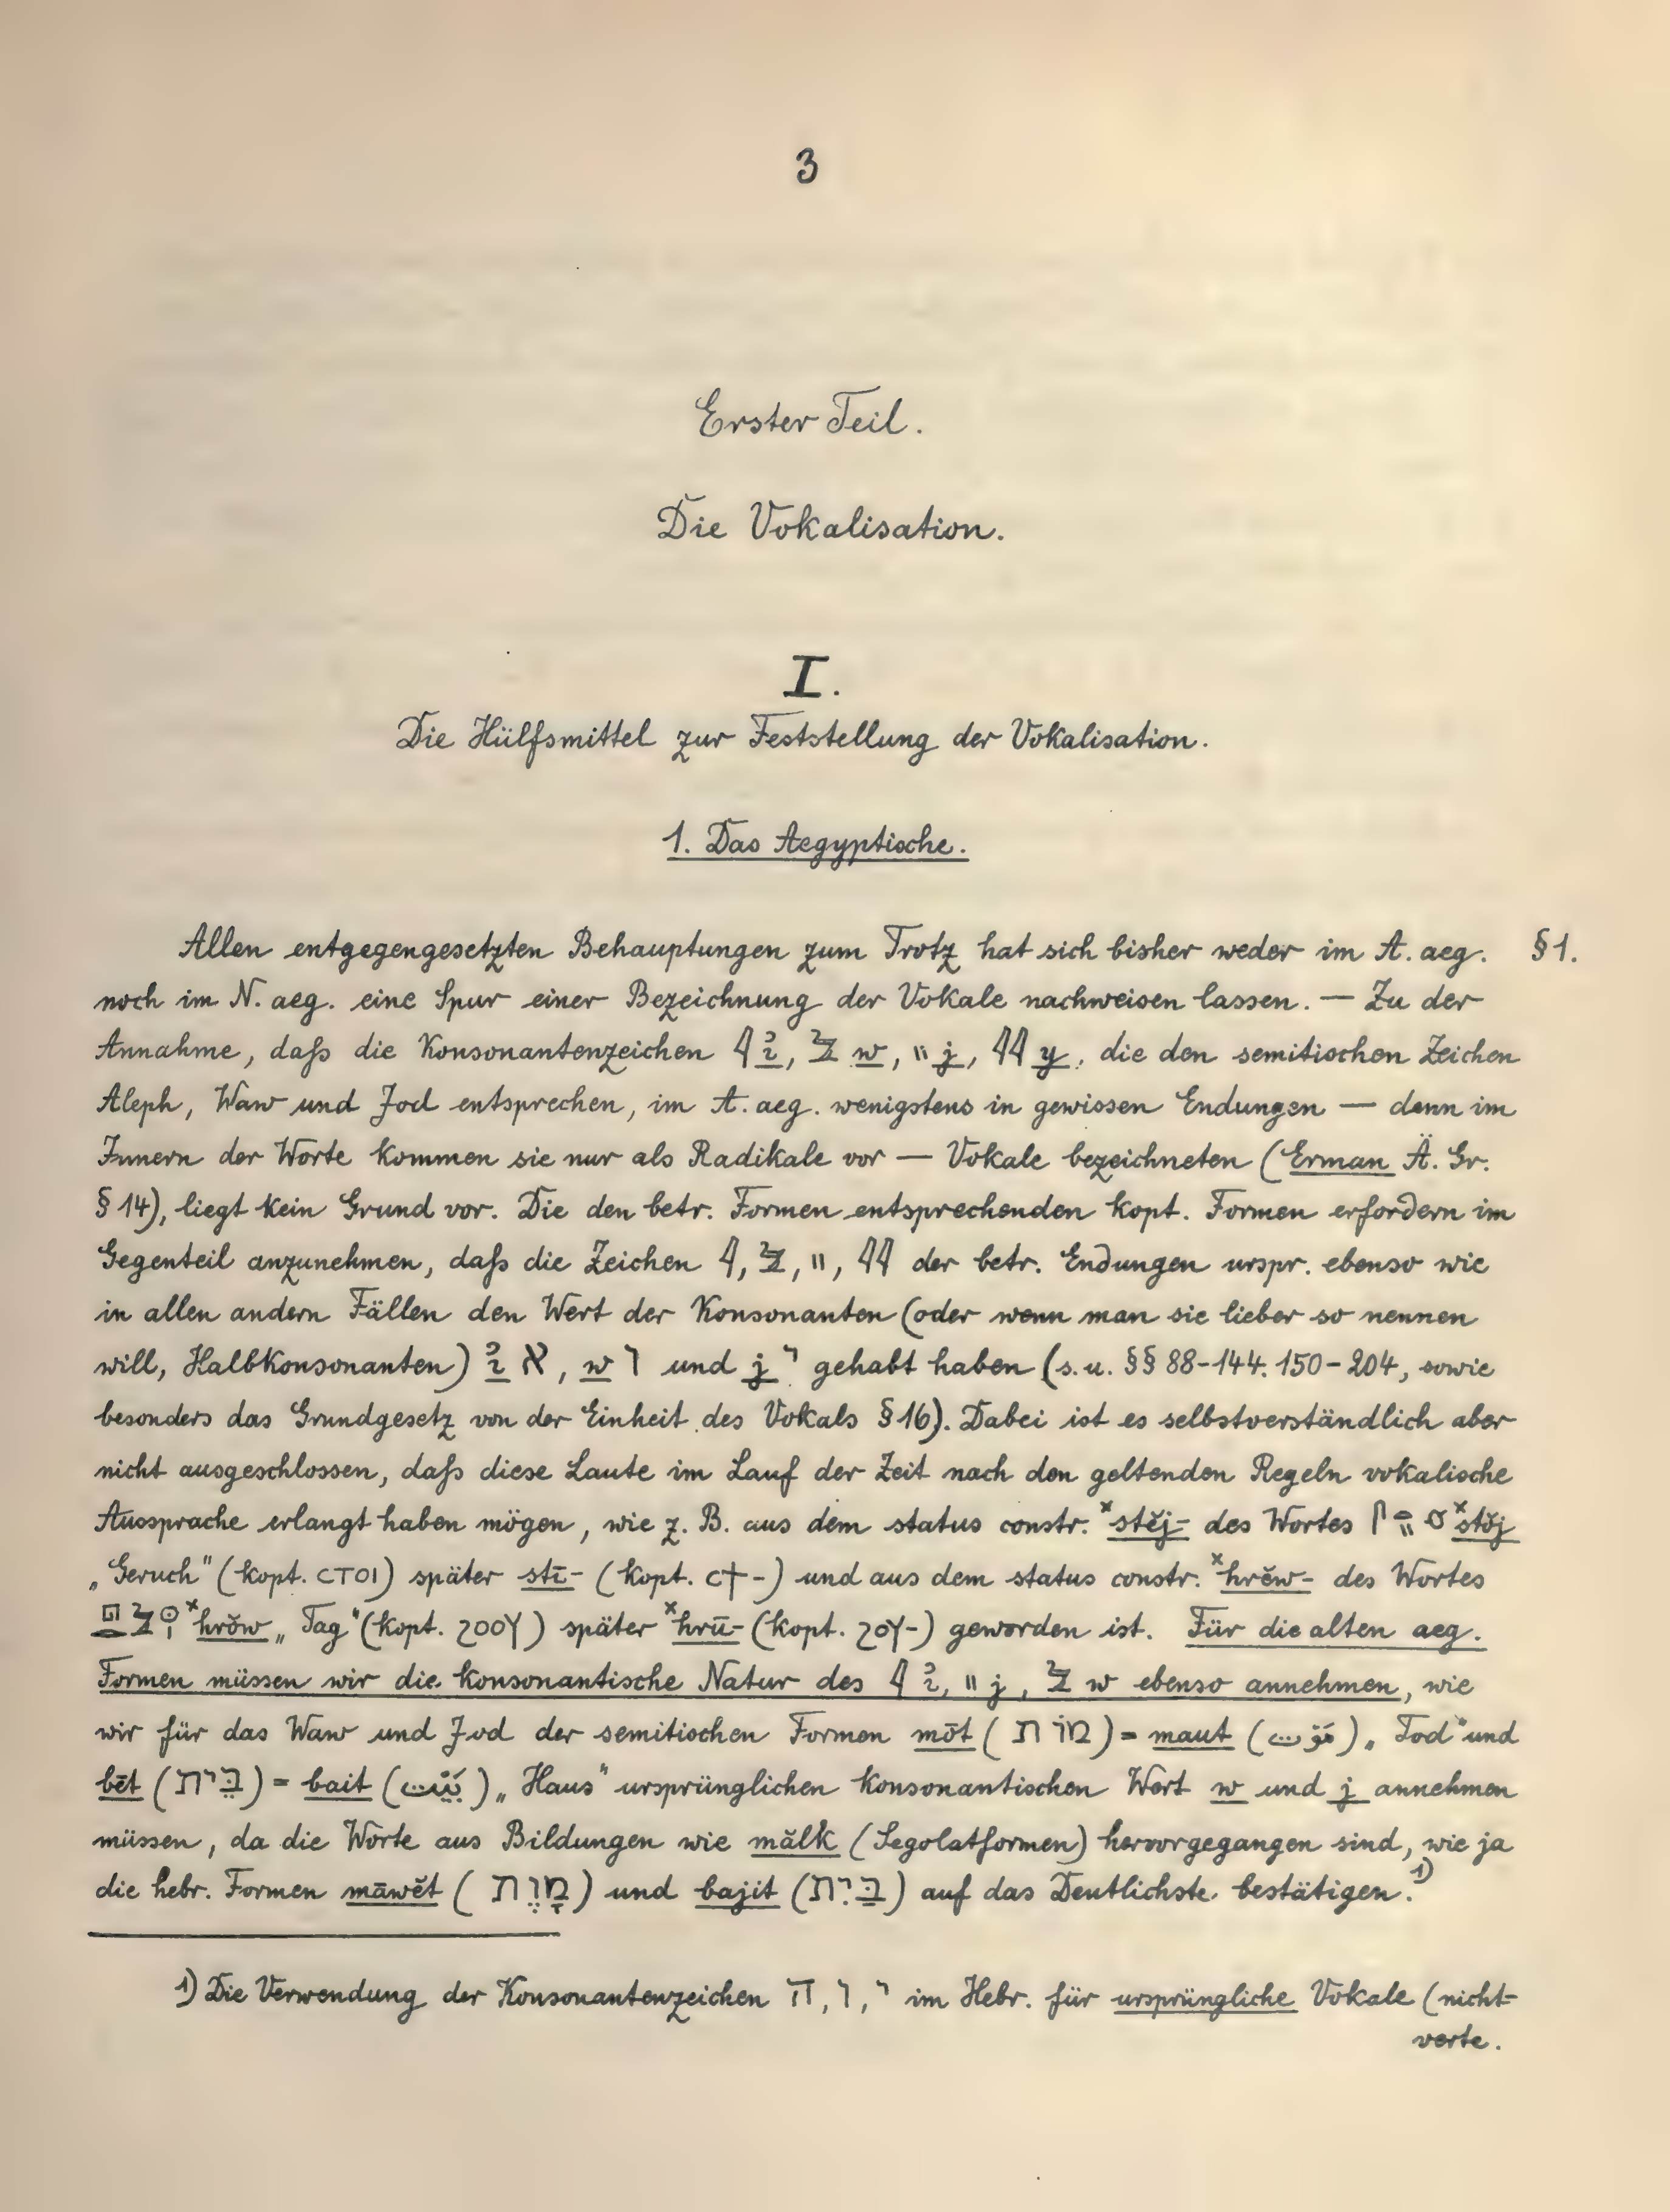 3
Erster Teil.
Die Vokalisation.
I.
Die Hülfsmittel zur Feststellung der Vokalisation.
1. Das Aegyptische.
Allen entgegengesetzten Behauptungen zum Trotz hat sich bisher weder im A. aeg. § 1.
noch im N. aeg. eine Spur einer Bezeichnung der Vokale nachweisen lassen. — Zu der
Annahme, daß die Konsonantenzeichen 𓇋 ꞽ, 𓅱 w, 𓏭 j, 𓇌 y, die den semitischen Zeichen
Aleph, Waw und Jod entsprechen, im A. aeg. wenigstens in gewissen Endungen — denn im
Innern der Worte kommen sie nur als Radikale vor — Vokale bezeichneten (Erman Ä. Gr.
§ 14), liegt kein Grund vor. Die den betr. Formen entsprechenden kopt. Formen erfordern im
Gegenteil anzunehmen, daß die Zeichen 𓇋, 𓅱, 𓏭, 𓇌 der betr. Endungen urspr. ebenso wie
in allen andern Fällen den Wert der Konsonanten (oder wenn man sie lieber so nennen
will, Halbkonsonanten) ꞽ א, w ו und j י gehabt haben (s. u. §§ 88-144. 150-204, sowie
besonders das Grundgesetz von der Einheit des Vokals § 16). Dabei ist es selbstverständlich aber
nicht ausgeschlossen, daß diese Laute im Lauf der Zeit nach den geltenden Regeln vokalische
Aussprache erlangt haben mögen, wie z. B. aus dem status constr. ˣstĕj- des Wortes ˣstŏj
„Geruch" (kopt. ⲥⲧⲟⲓ) später stī- (kopt. ⲥϯ-) und aus dem status constr. ˣhrĕw- des Wortes
ˣhrŏw „Tag" (kopt. ϩⲟⲟⲩ) später ˣhrū- (kopt. ϩⲟⲩ-) geworden ist. Für die alten aeg.
Formen müssen wir die konsonantische Natur des 𓇋 ꞽ, 𓏭 j, 𓅱 w ebenso annehmen, wie
wir für das Waw und Jod der semitischen Formen mōt (מוֹת) = maut (مَوْت) „Tod" und
bēt (בֵּית) = bait (بَيْت) „Haus" ursprünglichen konsonantischen Wert w und j annehmen
müssen, da die Worte aus Bildungen wie mălk (Segolatformen) hervorgegangen sind, wie ja
die hebr. Formen māwĕt (מָוֶת) und bajit (בַּיִת) auf das Deutlichste bestätigen.¹⁾
1) Die Verwendung der Konsonantenzeichen ה, ו, י im Hebr. für ursprüngliche Vokale (nicht-
verte.